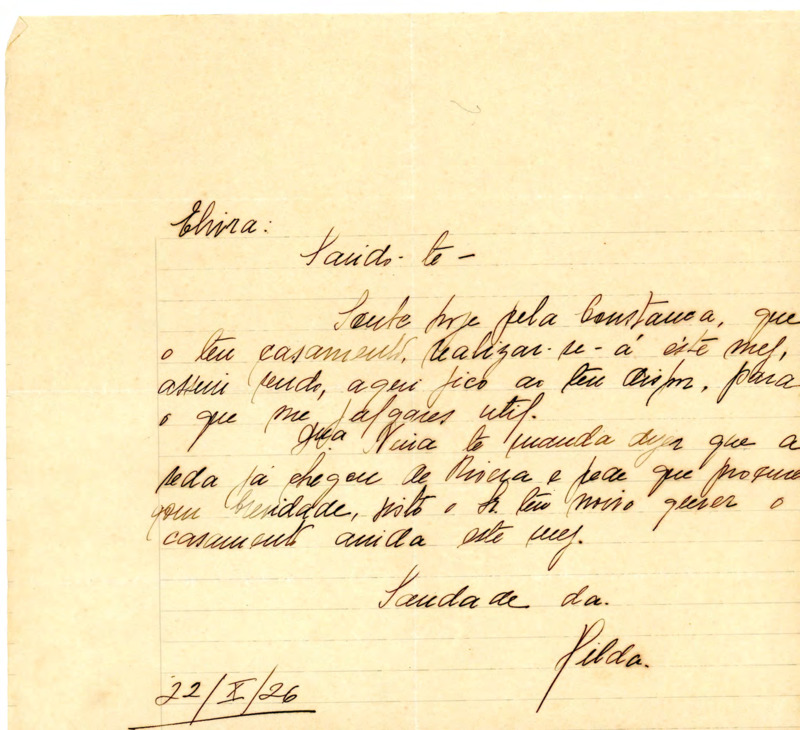 Elvira:
Saúdo-te -
Soube hoje pela Constança, que
o teu casamento, realizar-se-á êste mez,
assim sendo, aqui fico ao teu dispor, para
o que me julgares util.
Nina te manda dizer que a
seda já chegou de Rivera e pede que procure
com brevidade, visto o Sr. teu noivo querer o
casamento ainda este mez.
Saudade da.
Hilda.
22/X/26